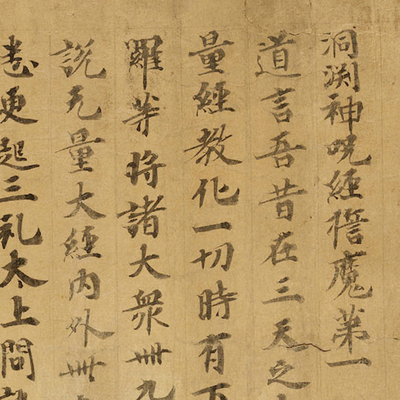 洞渊神呪經誓魔第一
道言吾昔在三天之
量經教化一切時有下
羅等將諸大衆卌九
說无量大經内外卌
恚更起三礼太上問